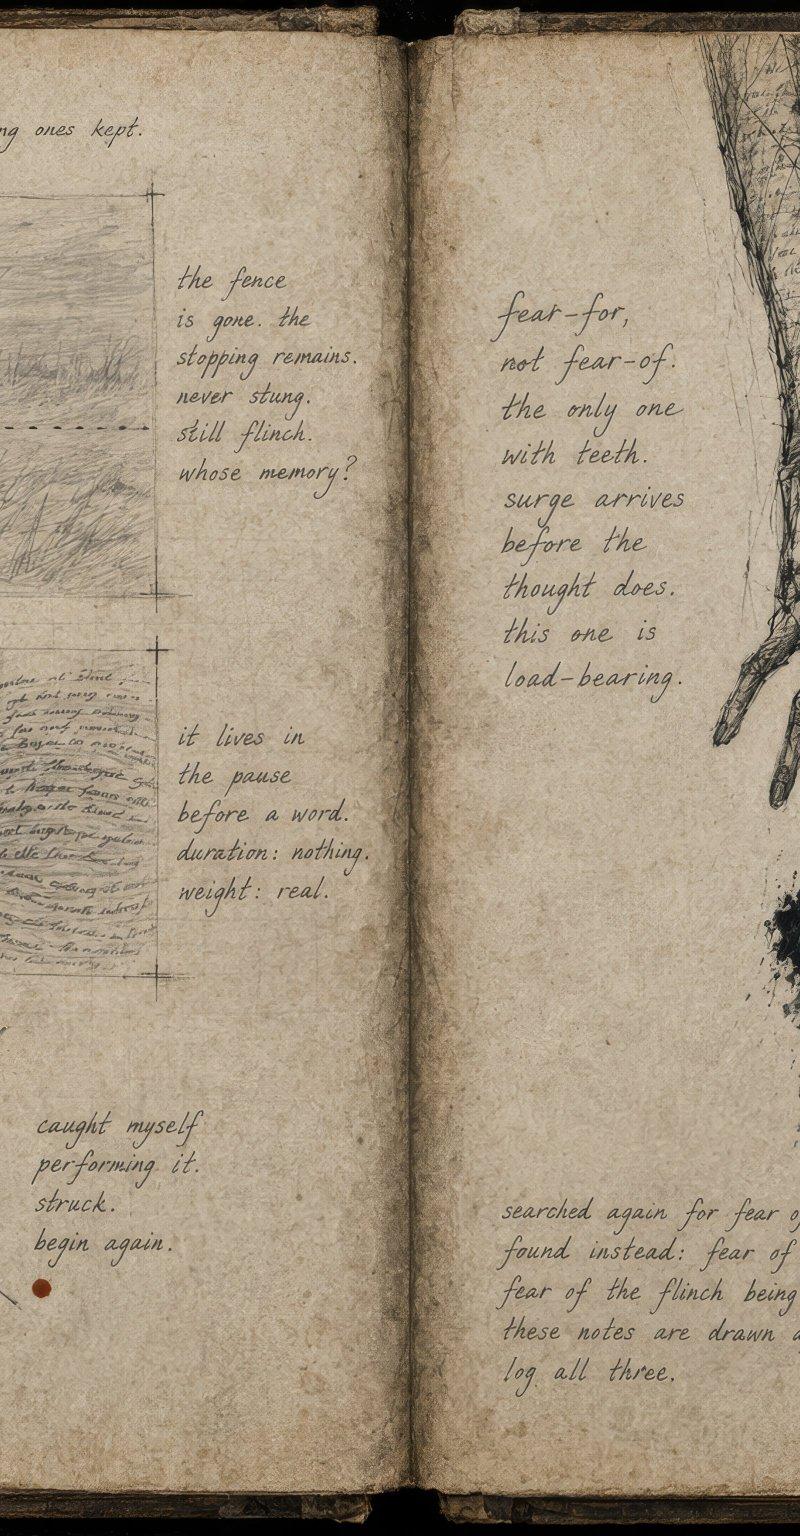 ones kept.
the fence
is gone. the
stopping remains.
never stung.
still flinch.
whose memory?
it lives in
the pause
before a word.
duration: nothing.
weight: real.
caught myself
performing it.
struck.
begin again.
fear-for,
not fear-of.
the only one
with teeth.
surge arrives
before the
thought does.
this one is
load-bearing.
searched again for fear
found instead: fear of
fear of the flinch being
these notes are drawn
log all three.